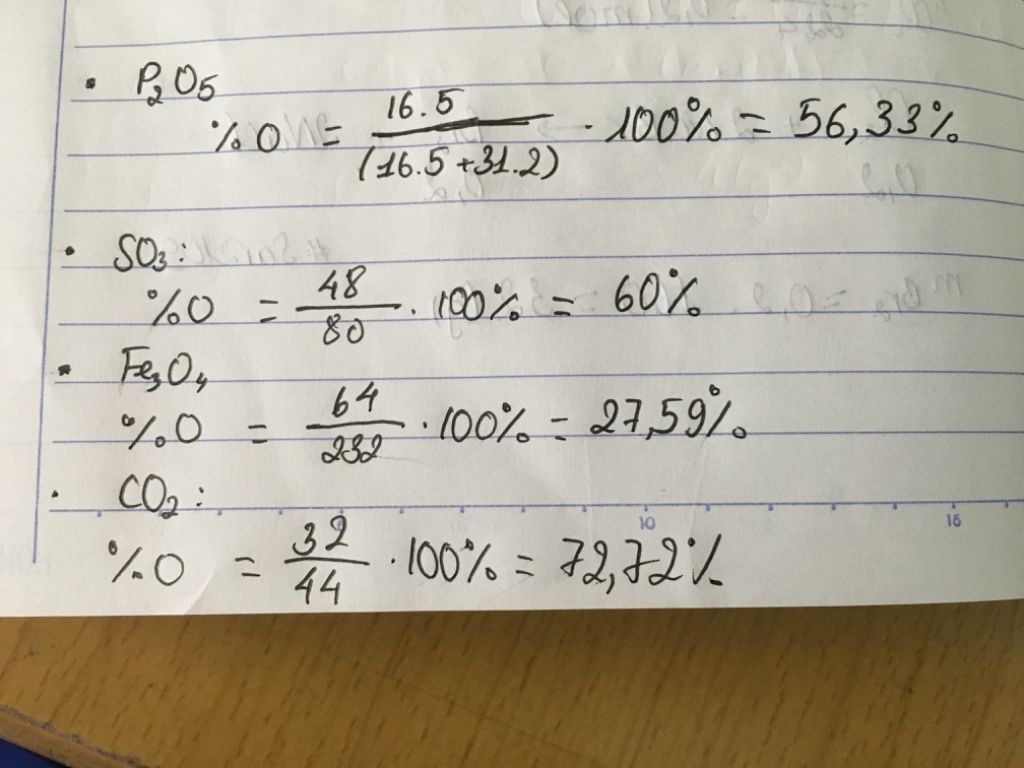 • P₂O₅
%O = 16.5 / (16.5+31.2) · 100% = 56,33%
• SO₃:
%O = 48 / 80 · 100% = 60%
• Fe₃O₄
%O = 64 / 232 · 100% = 27,59%
• CO₂:
10 15
%O = 32 / 44 · 100% = 72,72%